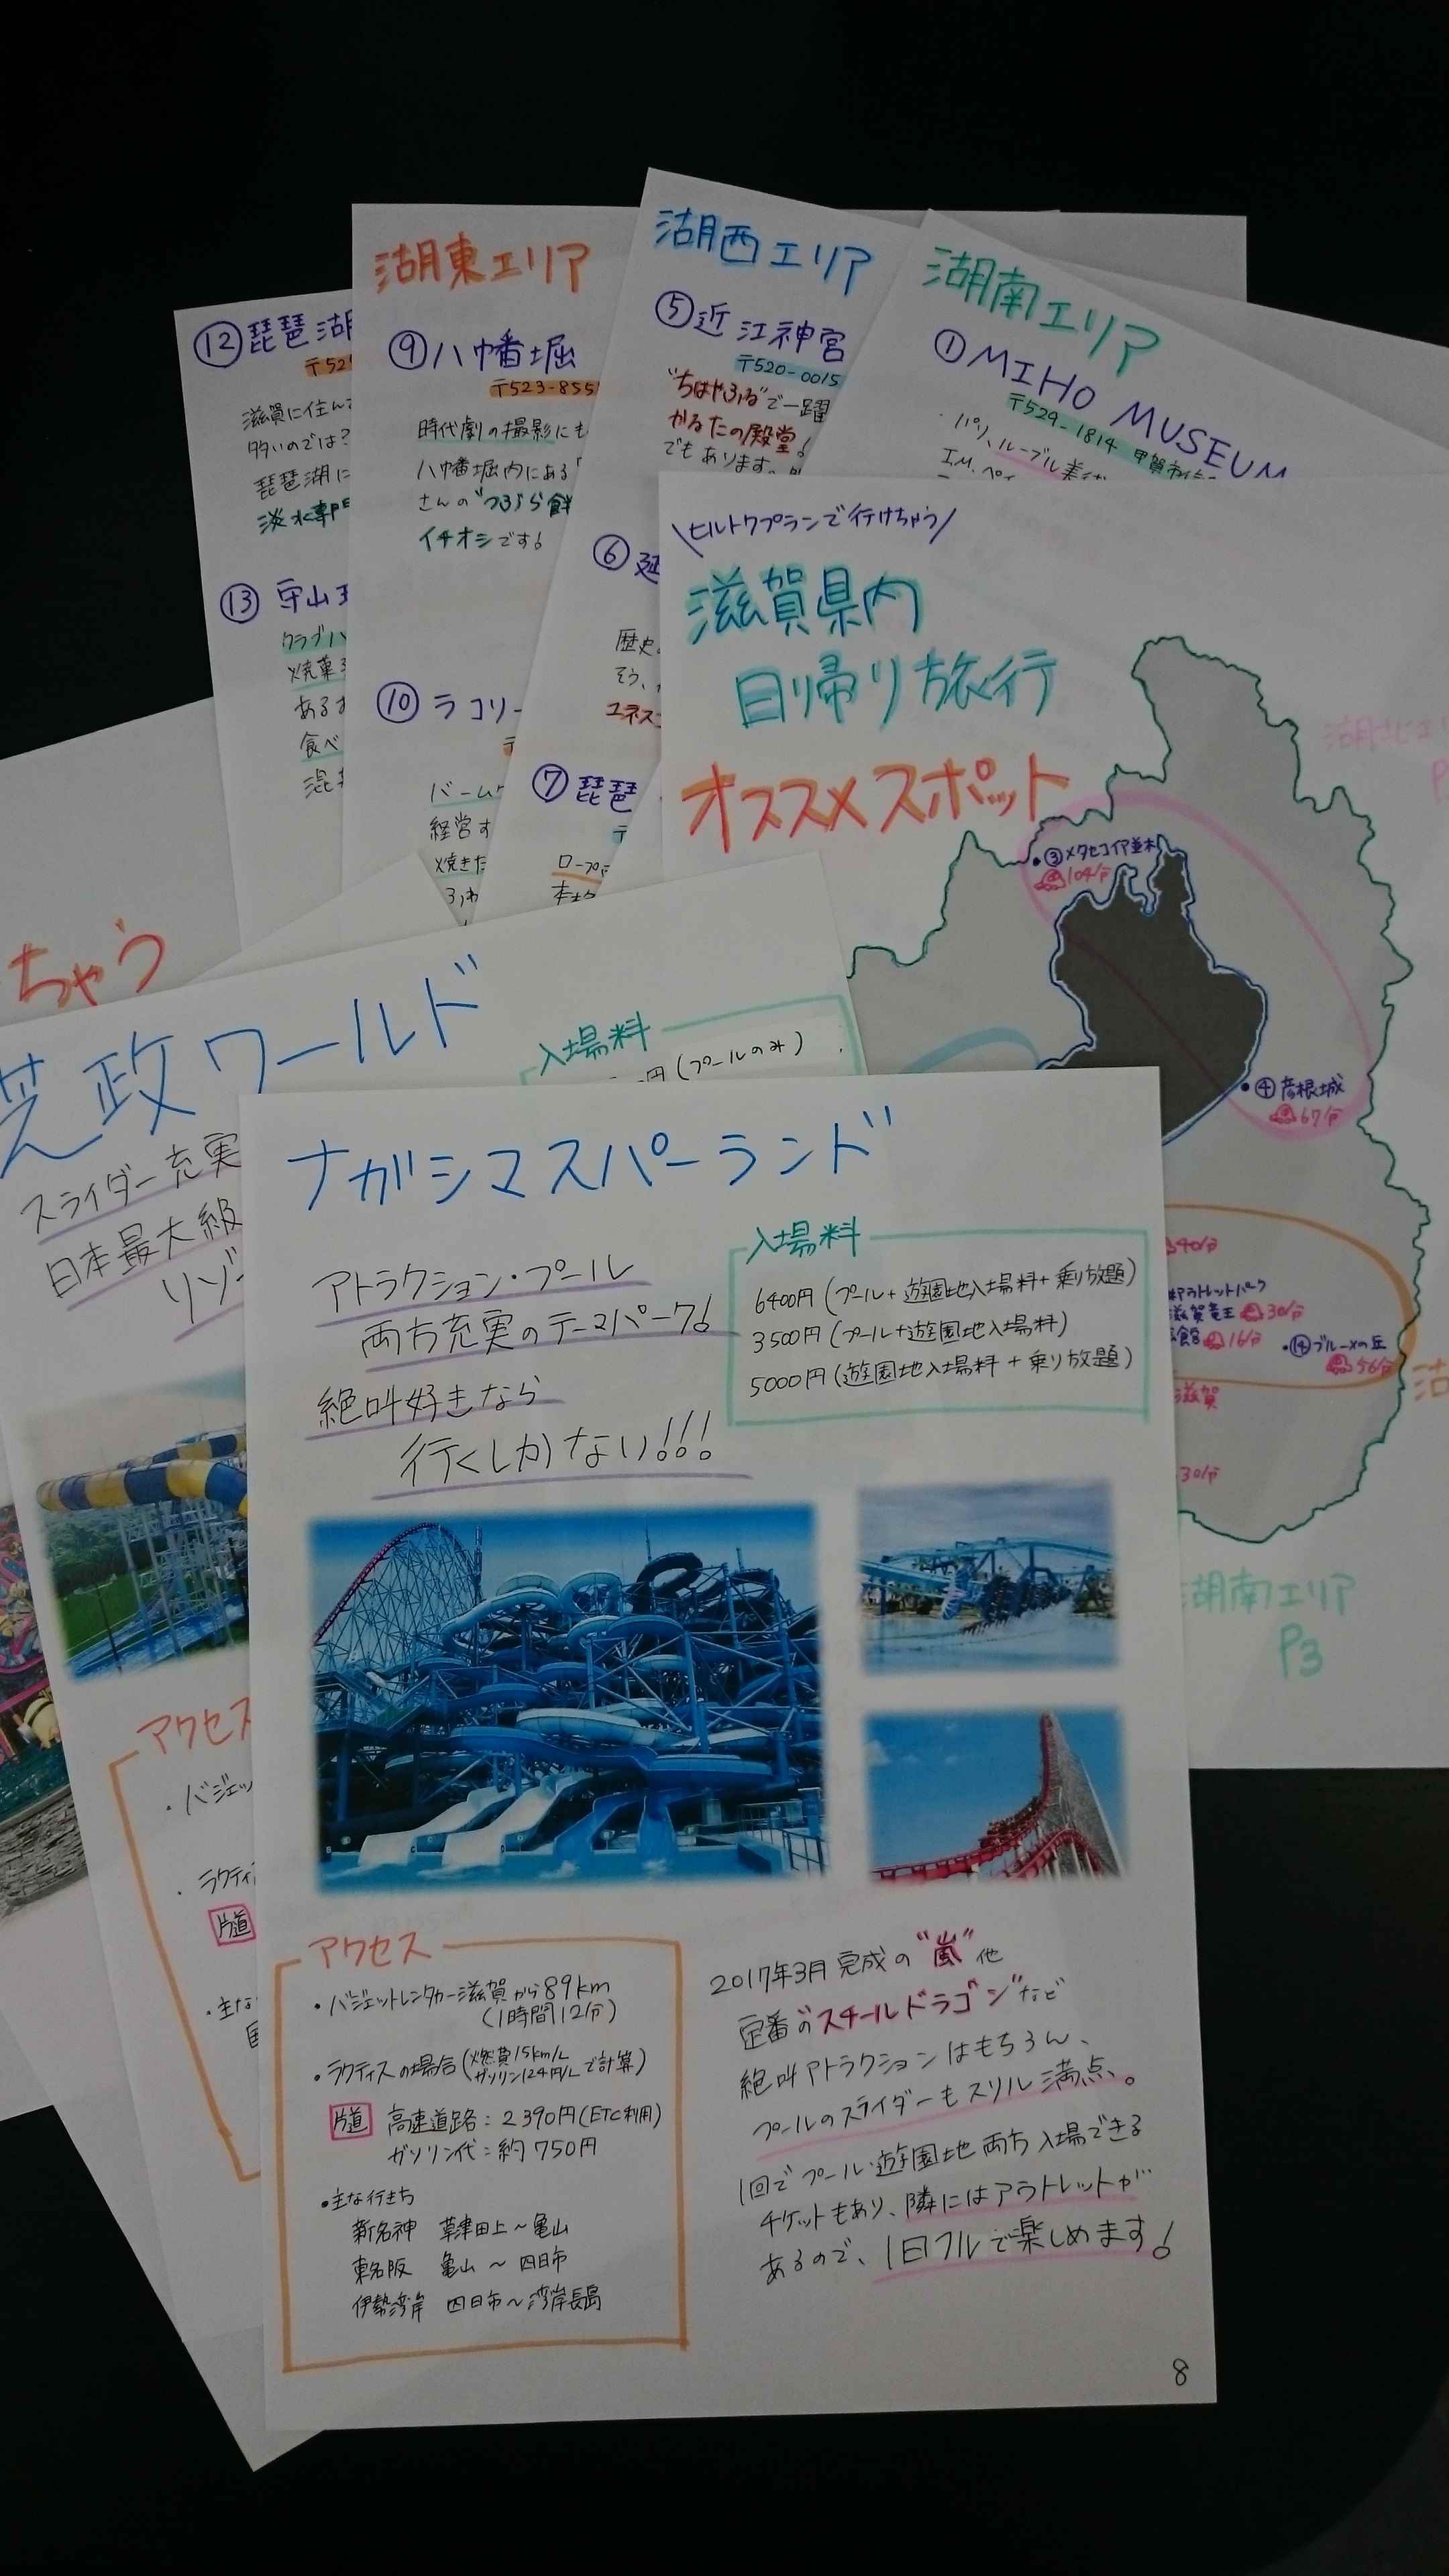 湖東エリア
⑨八幡堀
〒523-855
時代劇の撮影にも
八幡堀内にある「
さんの"つぶら餅
イチオシです!
⑩ラコリー
バームク
経営す
焼きた
ふわ
湖西エリア
⑤近江神宮
〒520-0015
"ちはやふる"で一躍
かるたの殿堂!
でもあります。
⑥延
歴史
そう、
ユネスコ
⑦琵琶
〒
ロープウ
湖南エリア
①MIHO MUSEUM
〒529-1814 甲賀市信
パリ、ルーブル美術
I.M.ペイ
⑫琵琶湖
〒52
滋賀に住んで
多いのでは?
琵琶湖に
淡水専門
⑬守山玉
クラブハ
焼菓子
あるお
食べ
混
\ヒルトクプランで行けちゃう/
滋賀県内
日帰り旅行
オススメスポット
湖北エリ
P
・③メタセコイア並木
104分
・④彦根城
67分
40分
アウトレットパーク
滋賀竜王 30分
館 16分
・⑭ブルーメの丘
56分
滋賀
30分
湖南エリア
P3
ちゃう
芝政ワールド
入場料
円(プールのみ)
スライダー充実
日本最大級
リゾー
アクセス
・バジェッ
・ラクティ
片道
・主な
ナガシマスパーランド
アトラクション・プール
両方充実のテーマパーク!
絶叫好きなら
行くしかない!!!
入場料
6400円(プール+遊園地入場料+乗り放題)
3500円(プール+遊園地入場料)
5000円(遊園地入場料+乗り放題)
アクセス
・バジェットレンタカー滋賀から89km
(1時間12分)
・ラクティスの場合(燃費15km/L
ガソリン124円/Lで計算)
片道 高速道路:2390円(ETC利用)
ガソリン代:約750円
・主な行き方
新名神 草津田上〜亀山
東名阪 亀山〜四日市
伊勢湾岸 四日市〜湾岸長島
2017年3月完成の"嵐"他
定番の"スチールドラゴン"など
絶叫アトラクションはもちろん、
プールのスライダーもスリル満点。
1回でプール・遊園地両方入場できる
チケットもあり、隣にはアウトレットが
あるので、1日フルで楽しめます!
8